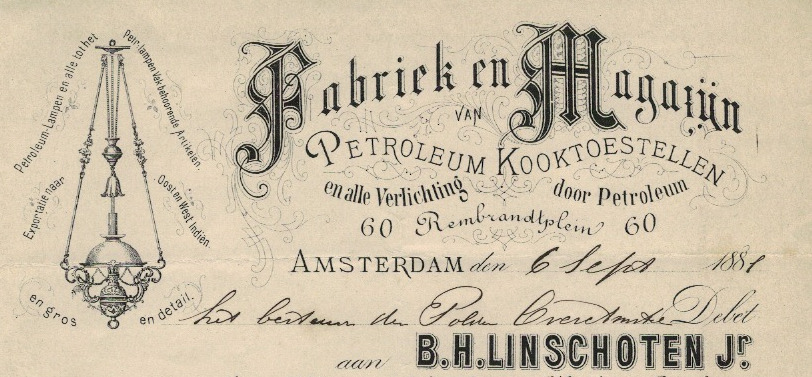 Petroleum-Lampen en alle tot het
Petr. lampen Vak behoorende Artikelen.
Exportatie naar
Oost en West Indiën.
en gros
en detail.
Fabriek en Magazijn
VAN
PETROLEUM KOOKTOESTELLEN
en alle Verlichting door Petroleum
60 Rembrandtplein 60
AMSTERDAM den 6 Sept 1881
het bestuur der Polder Debet
aan B.H. LINSCHOTEN Jr.